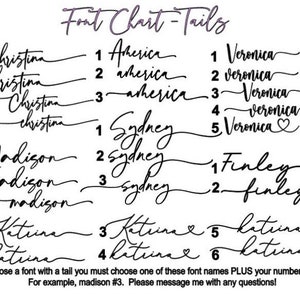 Font Chart - Tails
Christina
Christina
Christina
christina
1 America
2 america
3 america
1 Veronica
2 veronica
3 Veronica
4 veronica
5 Veronica
Madison
Madison
madison
1 Sydney
2 sydney
3 sydney
1 Finley
2 finley
Katrina
katrina
3 Katrina
4 katrina
5 katrina
6 katrina
ose a font with a tail you must choose one of these font names PLUS your number
For example, madison #3. Please message me with any questions!